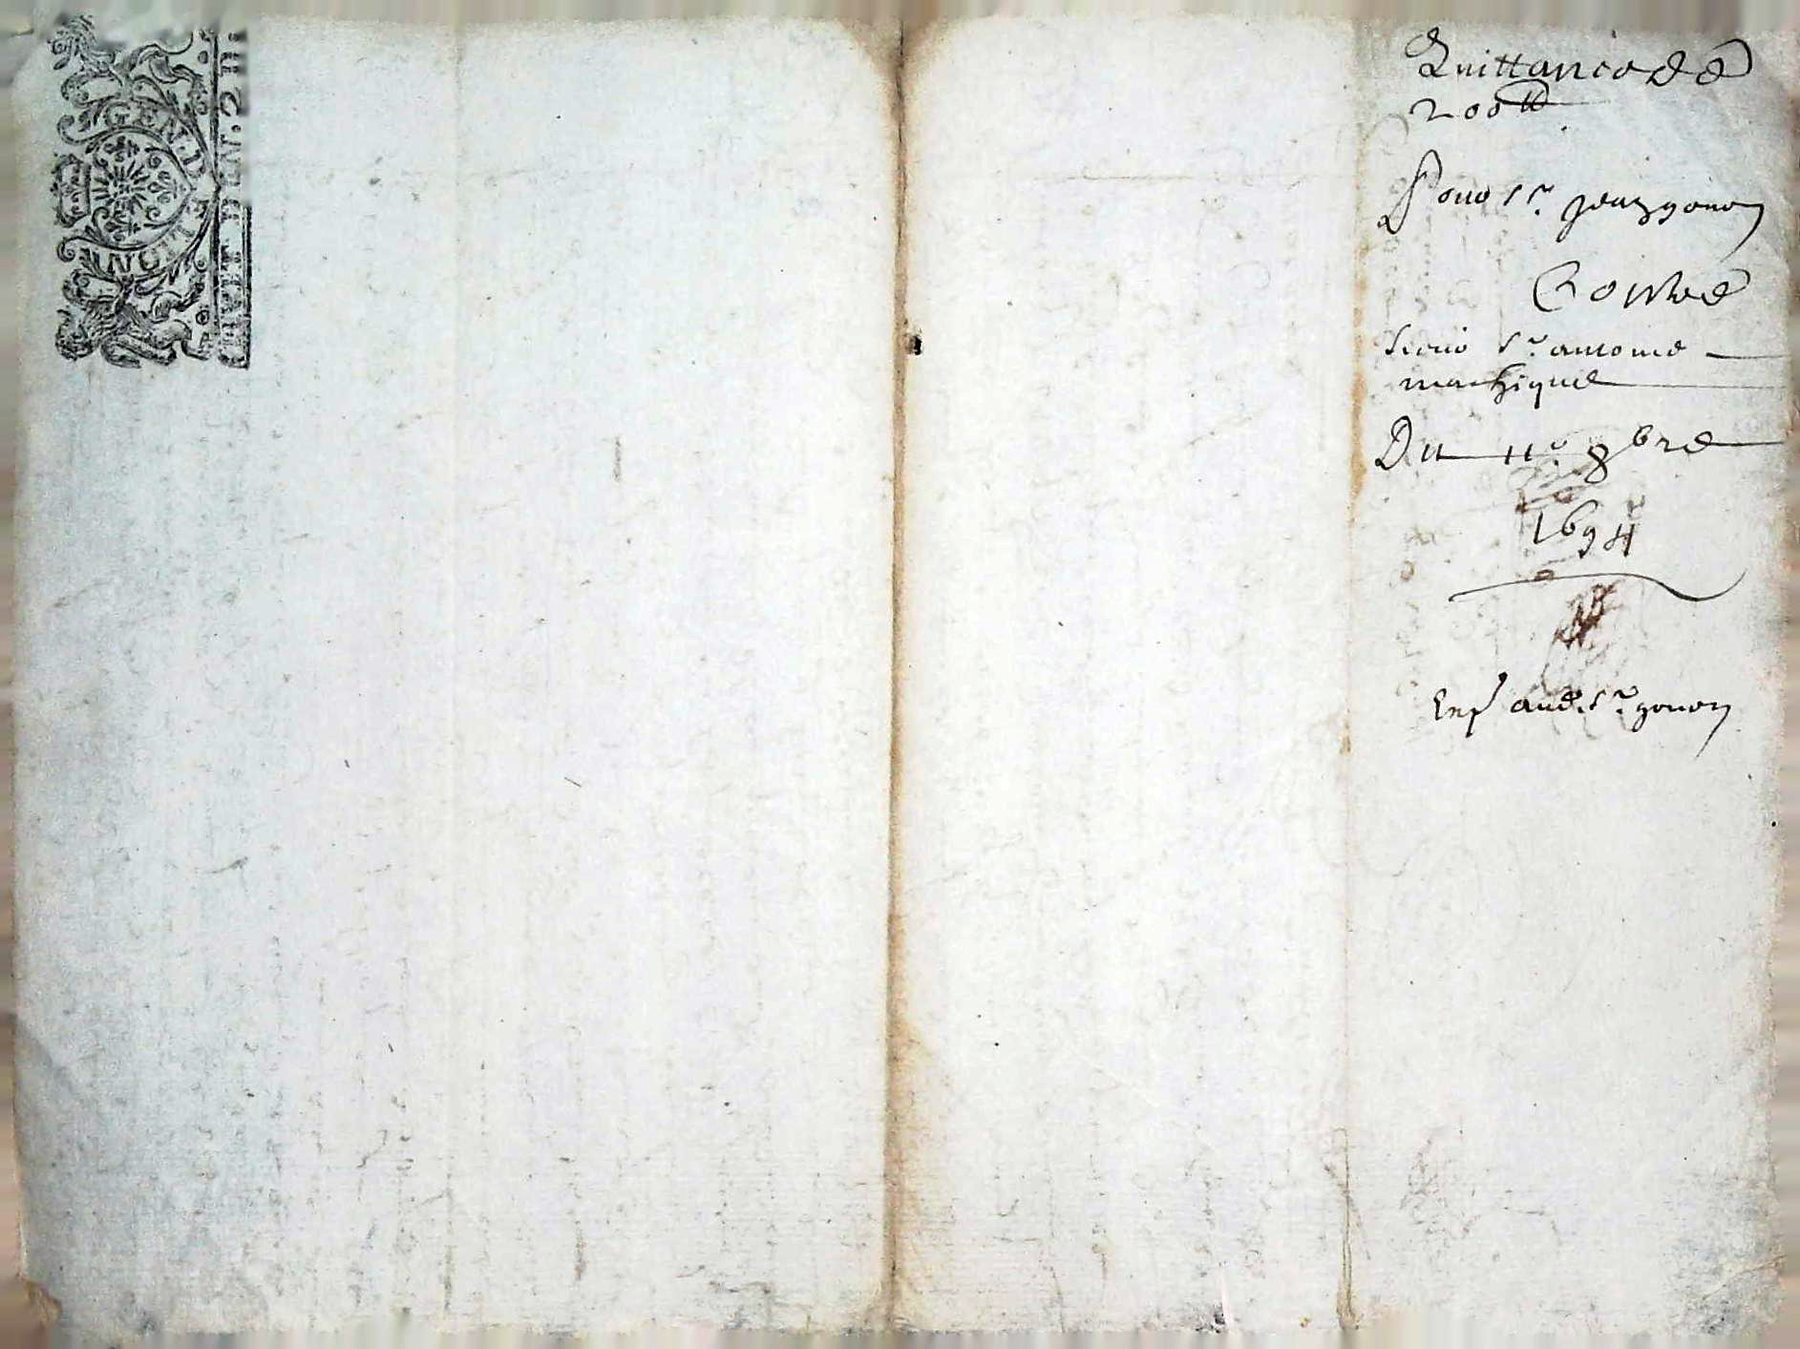 GEN. DE LION
FEUILLET DEN. 2 D.
Quittance de
200 ₶
Pour sr. jean gonon
Contre
Sieur sr. antoine
marhique
Du 11e 8bre
1694
Exp aud. sr. gonon